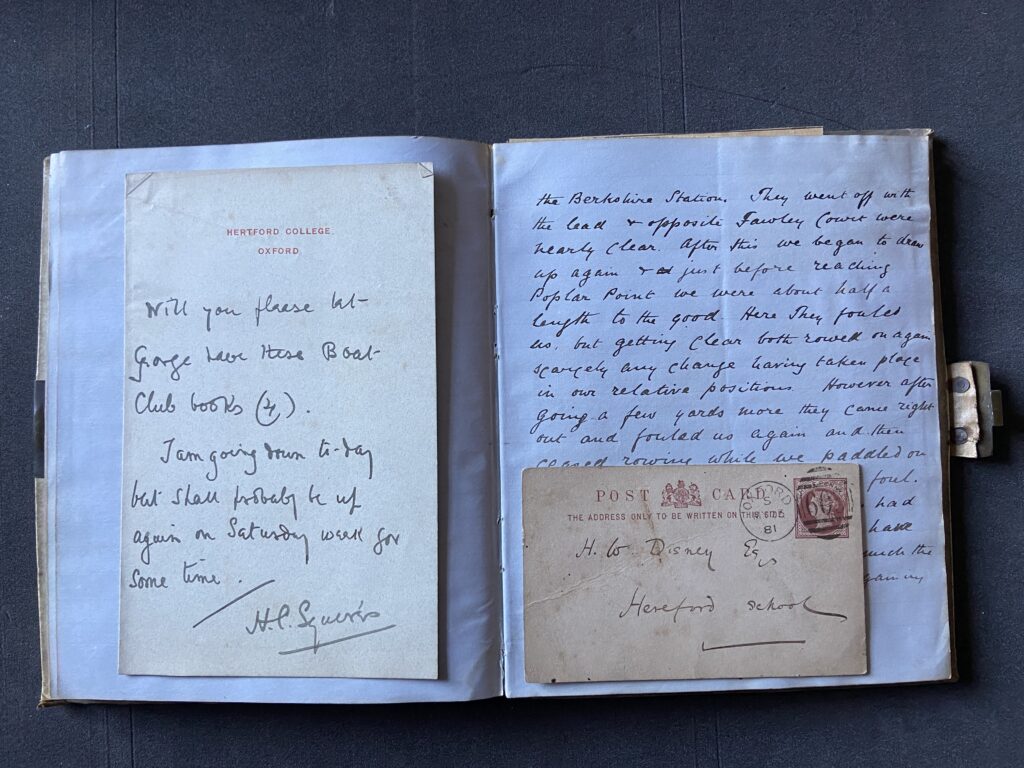 HERTFORD COLLEGE,
OXFORD
Will you please let
George have these Boat
Club books (4).
I am going down to-day
but shall probably be up
again on Saturday week for
some time.
the Berkshire Station. They went off with
the lead & opposite Fawley Court were
nearly clear. After this we began to draw
up again & just before reaching
Poplar Point we were about half a
length to the good. Here They fouled
us, but getting clear both rowed on again
scarcely any change having taken place
in our relative positions. However after
going a few yards more they came right
out and fouled us again and then
ceased rowing while we paddled on
foul.
had
have
much the
POST CARD
THE ADDRESS ONLY TO BE WRITTEN ON THIS SIDE
81
H. W. Disney Esq
Hereford School